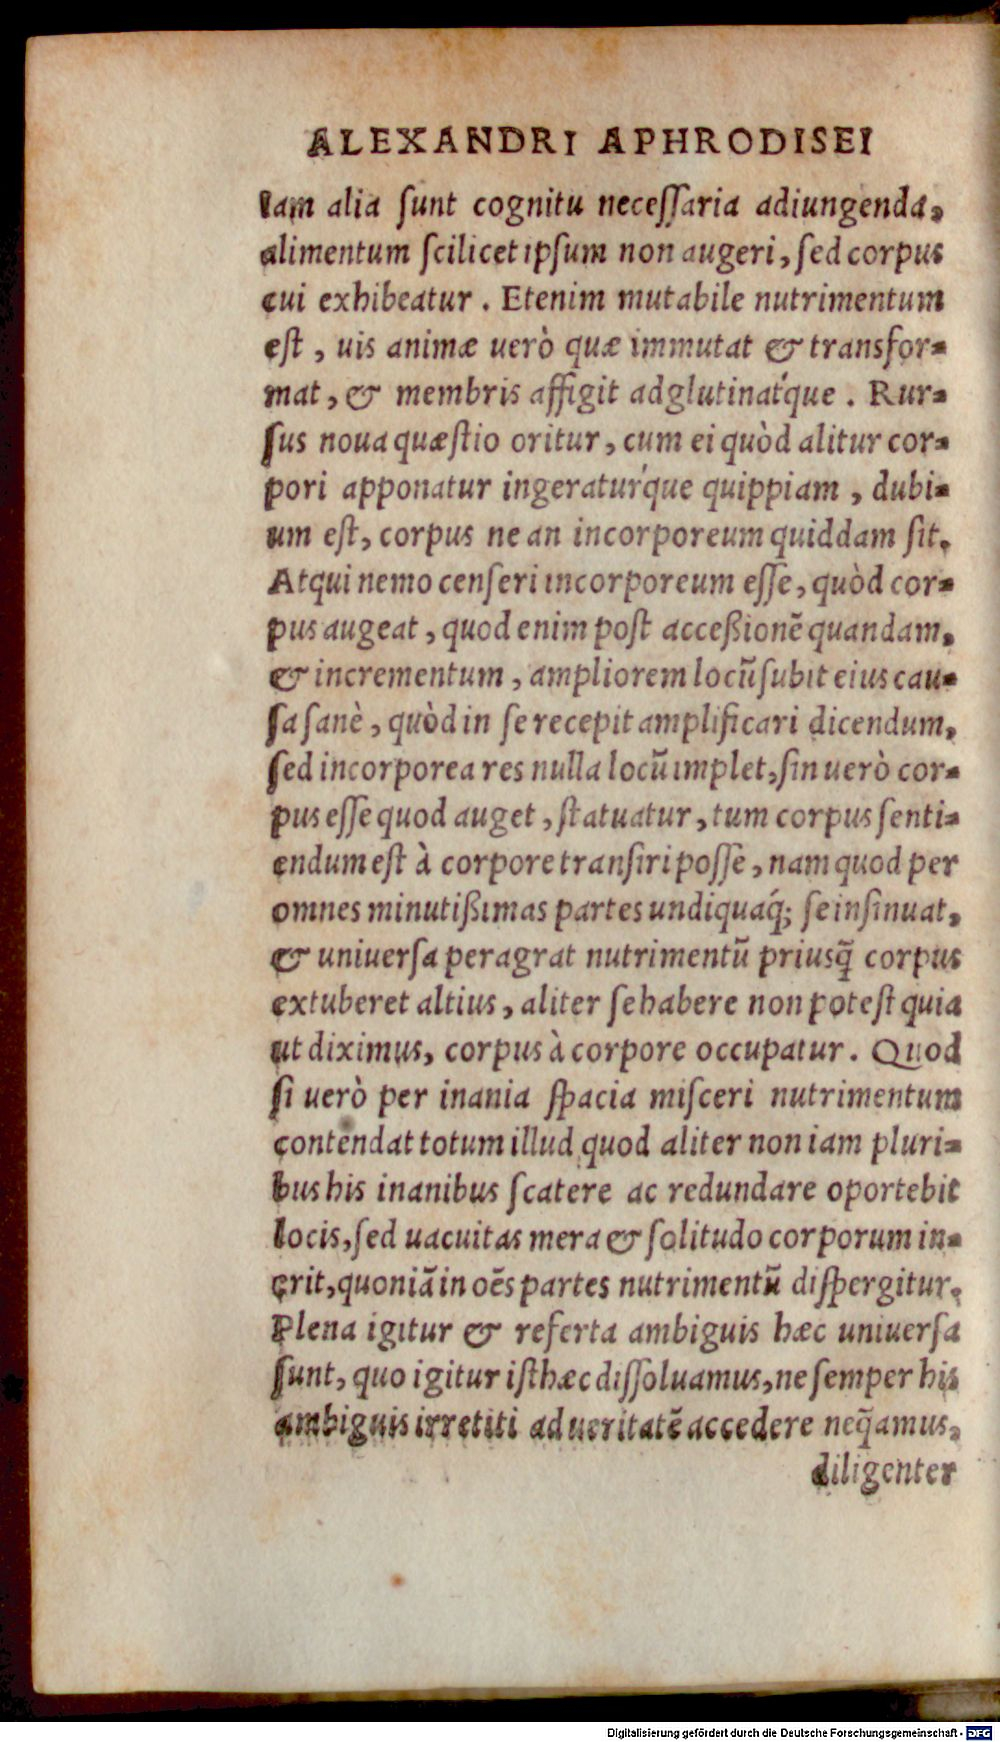 ALEXANDRI APHRODISEI
lam alia ſunt cognitu neceſſaria adiungenda,
alimentum ſcilicet ipſum non augeri, ſed corpus
cui exhibeatur. Etenim mutabile nutrimentum
eſt, uis animæ uerò quæ immutat & transfor-
mat, & membris affigit adglutinat́que. Rur-
ſus noua quæſtio oritur, cum ei quòd alitur cor-
pori apponatur ingeratuŕque quippiam, dubi-
um eſt, corpus ne an incorporeum quiddam ſit.
Atqui nemo cenſeri incorporeum eſſe, quòd cor-
pus augeat, quod enim poſt acceßionē quandam,
& incrementum, ampliorem locū ſubit eius cau-
ſa ſanè, quòd in ſe recepit amplificari dicendum,
ſed incorporea res nulla locū implet, ſin uerò cor-
pus eſſe quod auget, ſtatuatur, tum corpus ſenti-
endum eſt à corpore tranſiri poſſe, nam quod per
omnes minutißimas partes undiquaq́; ſe inſinuat,
& uniuerſa peragrat nutrimentū priusq̃ corpus
extuberet altius, aliter ſe habere non poteſt quia
ut diximus, corpus à corpore occupatur. Quod
ſi uerò per inania ſpacia miſceri nutrimentum
contendat totum illud quod aliter non iam pluri-
bus his inanibus ſcatere ac redundare oportebit
locis, ſed uacuitas mera & ſolitudo corporum in-
erit, quoniā in oēs partes nutrimentū diſpergitur.
Plena igitur & referta ambiguis hæc uniuerſa
ſunt, quo igitur iſthæc diſſoluamus, ne ſemper his
ambiguis irretiti ad ueritatē accedere neq̃amus,
diligenter
Digitalisierung gefördert durch die Deutsche Forschungsgemeinschaft - DFG